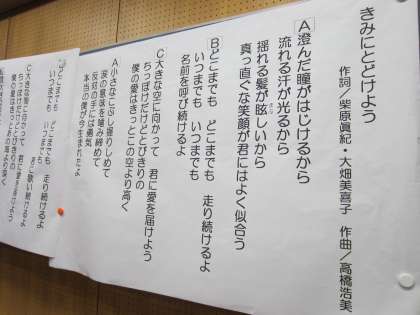 きみにとどけよう
作詞／柴原眞紀・大畑美喜子　作曲／高橋浩美
A 澄んだ瞳がはじけるから
流れる汗が光るから
揺れる髪が眩しいから
真っ直ぐな笑顔が君にはよく似合う
B どこまでも　どこまでも　走り続けるよ
いつまでも　いつまでも
名前を呼び続けるよ
C 大きな空に向かって　君に愛を届けよう
ちっぽけだけどとびきりの
僕の愛はきっとこの空より高く
A 小さなこぶし握りしめて
涙の意味を噛み締めて
反対の手には勇気
本当の僕が今生まれたよ
どこまでも　どこまでも　走り続けるよ
いつまでも　いつまでも
君に歌い続けるよ
C 大きな海に向かって　君に愛を届けよう
ちっぽけだけどとびきりの
僕の愛はきっとあの海より深く